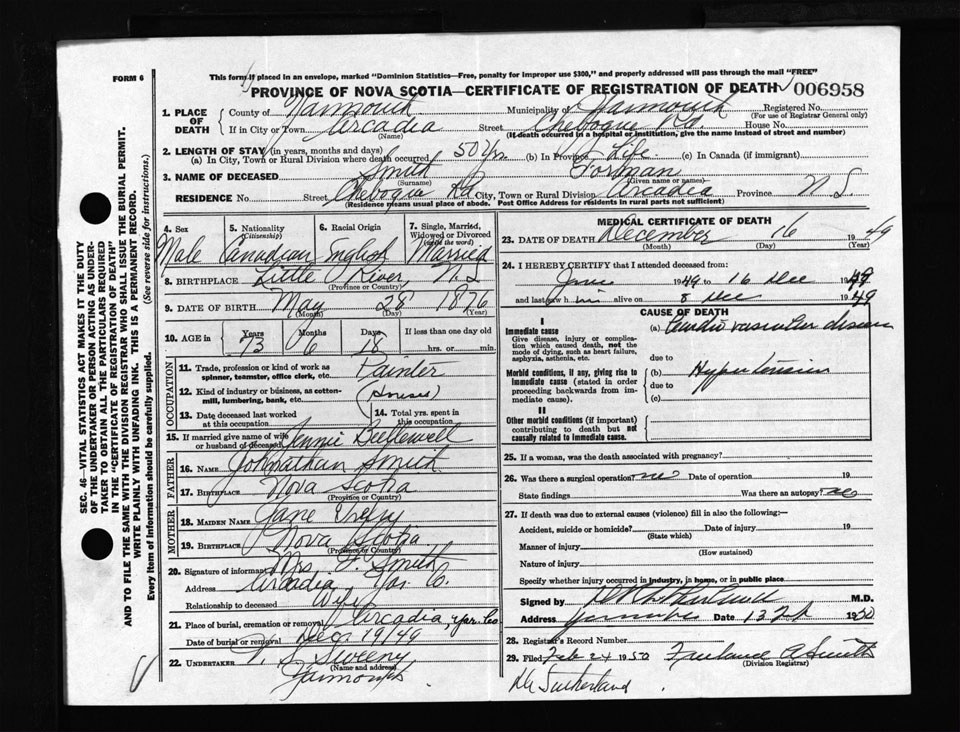 FORM 6
This form if placed in an envelope, marked "Dominion Statistics—Free, penalty for improper use $300," and properly addressed will pass through the mail "FREE"
PROVINCE OF NOVA SCOTIA—CERTIFICATE OF REGISTRATION OF DEATH 006958
SEC. 46—VITAL STATISTICS ACT MAKES IT THE DUTY
OF THE UNDERTAKER OR PERSON ACTING AS UNDER-
TAKER TO OBTAIN ALL THE PARTICULARS REQUIRED
IN THE "CERTIFICATE OF REGISTRATION OF DEATH"
AND TO FILE THE SAME WITH THE DIVISION REGISTRAR WHO SHALL ISSUE THE BURIAL PERMIT.
WRITE PLAINLY WITH UNFADING INK. THIS IS A PERMANENT RECORD.
Every item of information should be carefully supplied. (See reverse side for instructions.)
1. PLACE OF DEATH
County of Yarmouth Municipality of Yarmouth Registered No.
(For use of Registrar General only)
If in City or Town Arcadia Street Chebogue Rd. House No.
(Name) (If death occurred in a hospital or institution, give the name instead of street and number)
2. LENGTH OF STAY (in years, months and days)
(a) In City, Town or Rural Division where death occurred 50 yrs. (b) In Province Life (c) In Canada (if immigrant)
3. NAME OF DECEASED Smith Forman
(Surname) (Given name or names)
RESIDENCE No. Street Chebogue Rd City, Town or Rural Division Arcadia Province N S.
(Residence means usual place of abode. Post Office Address for residents in rural parts not sufficient)
4. Sex 5. Nationality (Citizenship) 6. Racial Origin 7. Single, Married, Widowed or Divorced (write the word)
Male Canadian English Married
8. BIRTHPLACE Little River, N.S
(Province or Country)
9. DATE OF BIRTH May 28 1876
(Month) (Day) (Year)
10. AGE in Years Months Days If less than one day old
73 6 18 hrs. or min.
OCCUPATION
11. Trade, profession or kind of work as spinner, teamster, office clerk, etc. Painter
12. Kind of industry or business, as cotton-mill, lumbering, bank, etc. (houses)
13. Date deceased last worked at this occupation
14. Total yrs. spent in this occupation
15. If married give name of wife or husband of deceased Jennie
FATHER
16. Name Johnathan Smith
17. BIRTHPLACE Nova Scotia
(Province or Country)
MOTHER
18. MAIDEN NAME Jane
19. BIRTHPLACE Nova Scotia
(Province or Country)
20. Signature of informant Mrs. F. Smith
Address Arcadia Yar. Co.
Relationship to deceased Wife
21. Place of burial, cremation or removal Arcadia, Yar. Co
Date of burial or removal Dec. 19/49
22. UNDERTAKER V. S. Sweeny
(Name and address)
Yarmouth
MEDICAL CERTIFICATE OF DEATH
23. DATE OF DEATH December 16 1949
(Month) (Day) (Year)
24. I HEREBY CERTIFY that I attended deceased from:
June 1949 to 16 Dec 1949
and last saw him alive on 8 Dec 1949
CAUSE OF DEATH
I
Immediate cause
Give disease, injury or complication which caused death, not the mode of dying, such as heart failure, asphyxia, asthenia, etc.
(a) Cardio vascular disease
due to
Morbid conditions, if any, giving rise to immediate cause (stated in order proceeding backwards from immediate cause).
(b) Hypertension
due to
(c)
II
Other morbid conditions (if important) contributing to death but not causally related to immediate cause.
25. If a woman, was the death associated with pregnancy?
26. Was there a surgical operation? no Date of operation 19
State findings Was there an autopsy? no
27. If death was due to external causes (violence) fill in also the following:—
Accident, suicide or homicide? Date of injury 19
(State which)
Manner of injury
(How sustained)
Nature of injury
Specify whether injury occurred in industry, in home, or in public place
Signed by M.D.
Address Yarmouth Date 13 Feb 1950
28. Registrar's Record Number
29. Filed Feb 24 1950 A Smith
(Division Registrar)
Sutherland